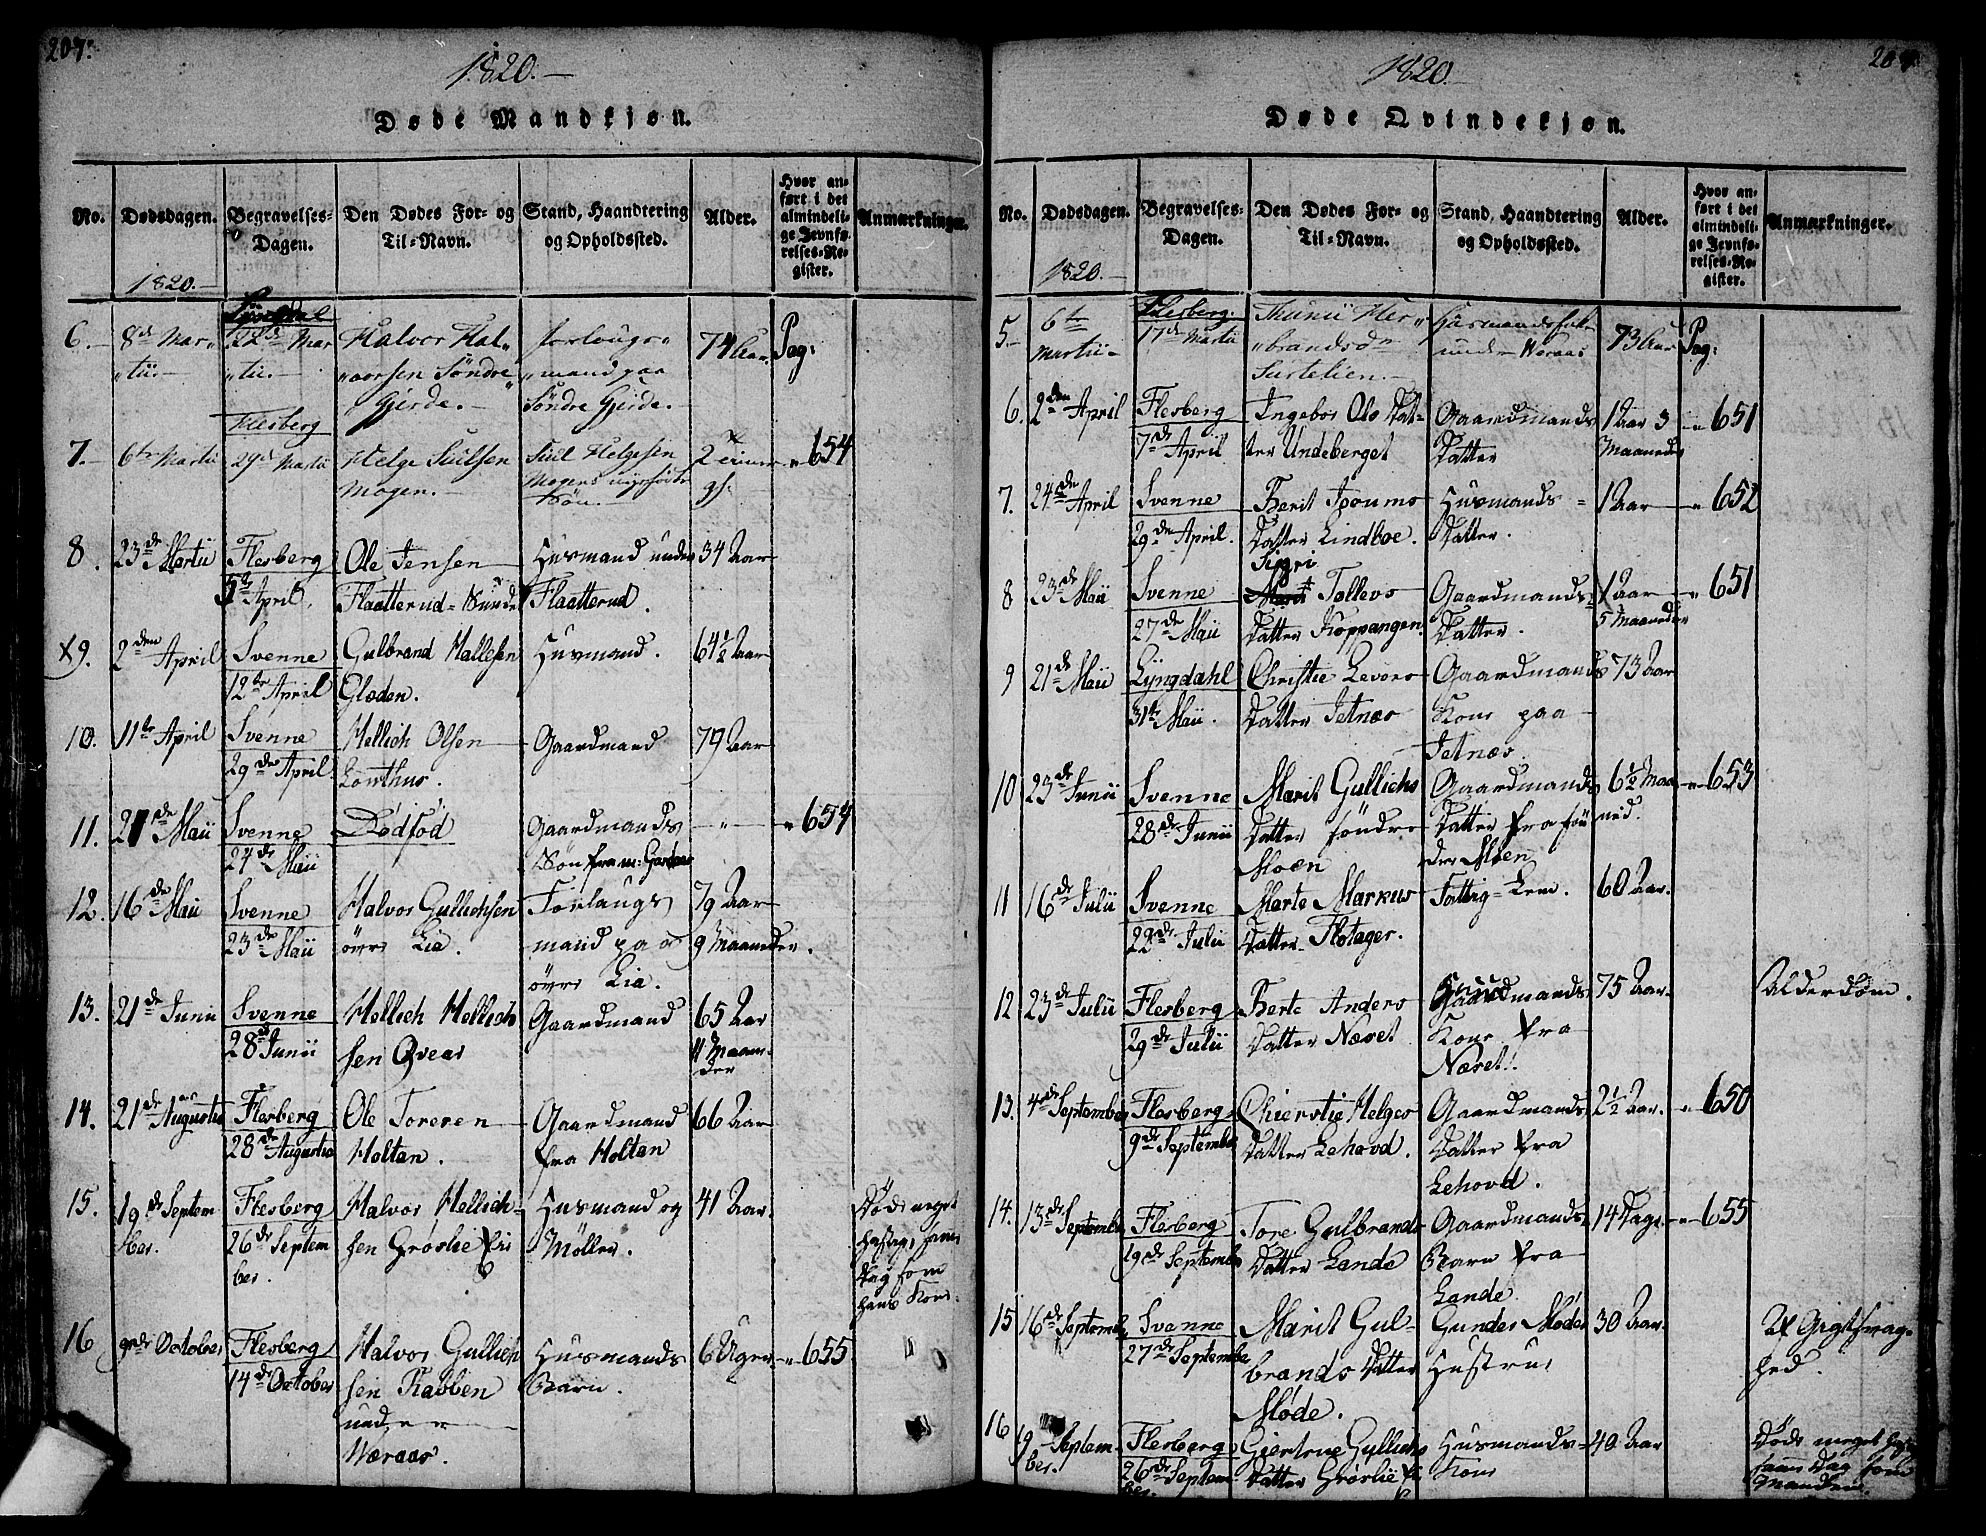 207.
1820.
Døde Mandkjøn.
No.
Dødsdagen.
Begravelses-
Dagen.
Den Dødes For- og
Til-Navn.
Stand, Haandtering
og Opholdssted.
Alder.
Hvor an-
ført i det
almindeli-
ge Jevnfø-
relses-Re-
gister.
Anmærkninger.
1820.
6.
8de Mar-
tii.
Lyngdal
22de Mar
tii.
Halvor Hal-
vorsen Søndre
Gjerde.
forlougs-
mand paa
Søndre Gjerde.
74 Aar
Pag:
7.
6te Martii
Flesberg
29de Martii
Helge
Mogen.
Helgesen
Mogens
Søn.
654
8.
23de Martii
Flesberg
5te April.
Ole Jensen
Flaatterud
Husmand under
Flaatterud.
34 Aar
x9.
2den April
Svenne
12te April
Gulbrand Hallesen
Gladen.
Husmand.
64½ Aar
10.
11te April
Svenne
29de April
Hellich Olsen
Lonthus.
Gaardmand
79 Aar
11.
21de Maii
Svenne
24de Maii
Dødfød
Gaardmands
Søn fra
654
12.
16de Maii
Svenne
23de Maii
Halvor Gullichsen
øvre Lia.
Forlaugs
mand paa
øvre Lia.
79 Aar
9 Maaneder.
13.
21de Junii
Svenne
28de Junii
Hellich Hellich
sen Qvear
Gaardmand
65 Aar
11 Maane-
der
14.
21de Augustii
Flesberg
28de Augustii
Ole Toreren
Holtan.
Gaardmand
fra Holtan
66 Aar
15.
19de Septem
ber.
Flesberg
26de Septem
ber.
Halvor Hellich-
sen Grøslie
Husmand og
Møller.
41 Aar.
Døde meget
hastig, samme
Dag som
hans Kone.
16
9nde October
Flesberg
14de October
Halvor Gullich
sen Kabben
under
Wæraas.
Husmands
Barn.
6 Uger
655
1820.
Døde Qvindekjøn.
No.
Dødsdagen.
Begravelses-
Dagen.
Den Dødes For- og
Til-Navn.
Stand, Haandtering
og Opholdssted.
Alder.
Hvor an-
ført i det
almindeli-
ge Jevnfø-
relses-Re-
gister.
Anmærkninger.
1820.
5.
6te
Martii
Flesberg.
17de Martii
Her-
brandsd.
Surtelien.
under Weraas
73 Aar
Pag:
6.
2den April
Flesberg
7de April
Ingebor Ols Dat-
ter Undeberget
Gaardmands
Datter
1 Aar 3
Maaneder
651
7.
24de April
Svenne
29de April.
Berit
Datter Lindboe.
Husmands
Datter.
1 Aar
652
8
23de Maii
Svenne
27de Maii
Sigri
Marit Tollevs
Datter Koppangen.
Gaardmands
Datter.
1 Aar
5 Maaneder
651
9
21de Maii
Lyngdahl
31te Maii.
Christie Levers
Datter Jetnæs
Gaardmands
Kone paa
Jetnæs
73 Aar
10
23de Junii
Svenne
28de Junii
Marit Gullichs
Datter søndre
Moen
Gaardmands
Datter fra søn
dre Moen
6½ Maa
ned.
653
11
16de Julii
Svenne
22de Julii
Merte Markus
Datter Flotager.
Fattig-Lem.
60 Aar.
12
23de Julii
Flesberg
29de Julii
Berte Anders
Datter Næset
Huusmands
Kone fra
Næset.
75 Aar.
Alderdom.
13.
4de September
Flesberg
9de September
Chierstie Helges
Datter Lehovd.
Gaardmands
Datter fra
Lehovd.
2½ Aar.
650
14.
13de September
Flesberg
19de September
Tore Gulbrands
Datter Lande
Gaardmands
Barn fra
Lande.
14 Dage
655
15
16de September
Svenne
27de September
Marit Gul-
brands Datter
Møde.
Gunder Mødes
Hustru
30 Aar.
Af Gigtsvag-
hed.
16
19 Septem-
ber.
Flesberg
26de Septem-
ber.
Giertrue Gullichs
Datter Grøslie
Husmands-
Kone
40 Aar
Døde meget
samme Dag som
Manden.